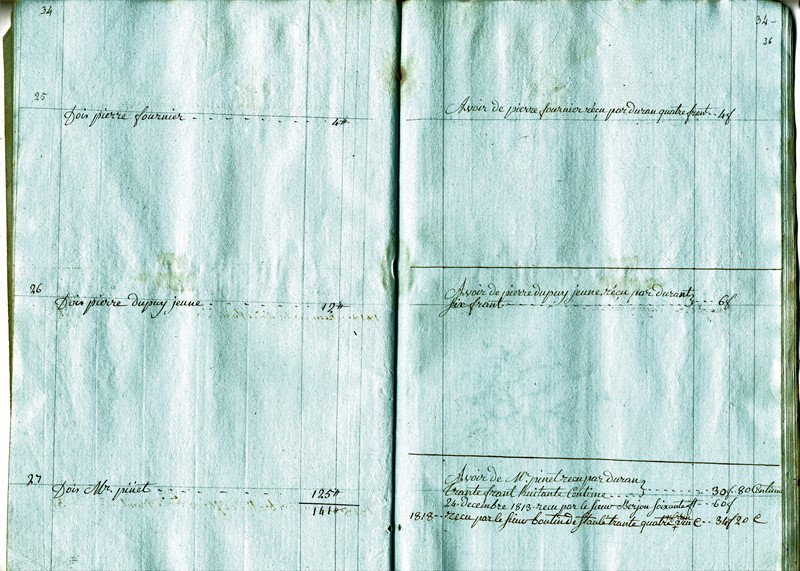 34
25
Dois pierre fournier - - - - - - - - - 4#
26
Dois pierre dupuy jeune - - - - - - - 12#
27
Dois Mr. pinet - - - - - - - - - 125#
141#
34-
36
Avoir de pierre fournier reçu par duran quatre frant - 4f
Avoir de pierre dupuy jeune, reçu par durant
six frant - - - - - - - - - - 6f
Avoir de Mr. pinet recu par duran
trante frant huitante Centime - - - - - 30f-80 Centime
24 decembre 1813 recu par le sieur soixante ff - - 60f
1818 - recu par le sieur trante quatre - - 34f 20 C